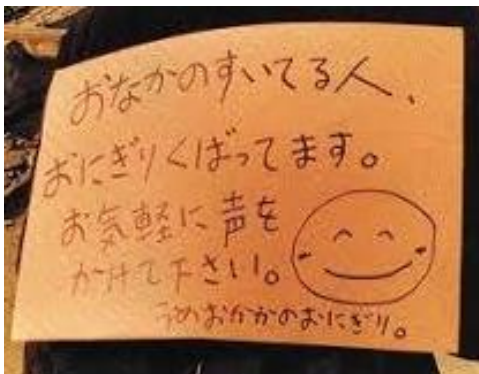 おなかのすいてる人、
おにぎりくばってます。
お気軽に声を
かけて下さい。
うめおかかのおにぎり。